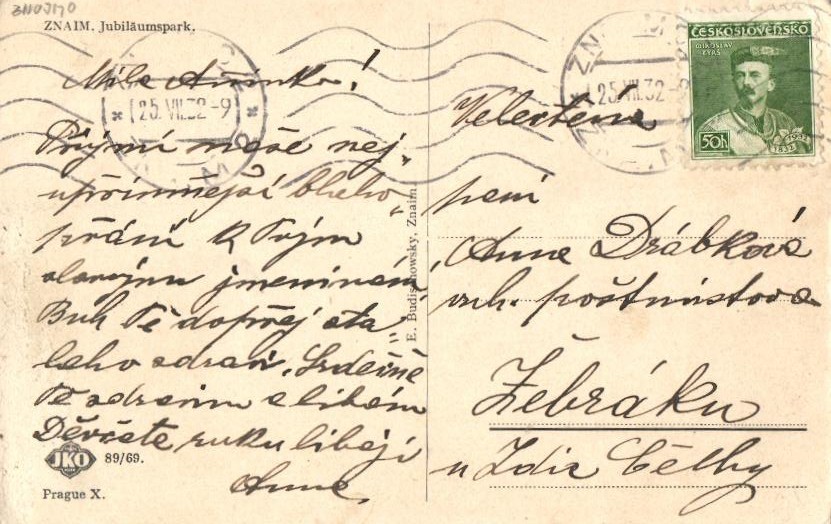 ZNOJMO
ZNAIM. Jubiläumspark.
Milá Aninko!
Přijmi naše nej-
upřímnější blaho-
přání k Tvým
slavným jmeninám
Bůh Tě dopřej stá-
lého zdraví. Srdečně
Tě zdravím a líbám
Děvčata ruku líbají
Anna,
JKO
89/69.
Prague X.
E. Budischowsky, Znaim.
25. VII. 32 - 9
25. VII. 32
ČESKOSLOVENSKO
MIROSLAV
TYRŠ
50h
1832
Velectěná
paní
Anna Drábková
vrch. poštmistrová
Žebráku
u Zdic Čechy